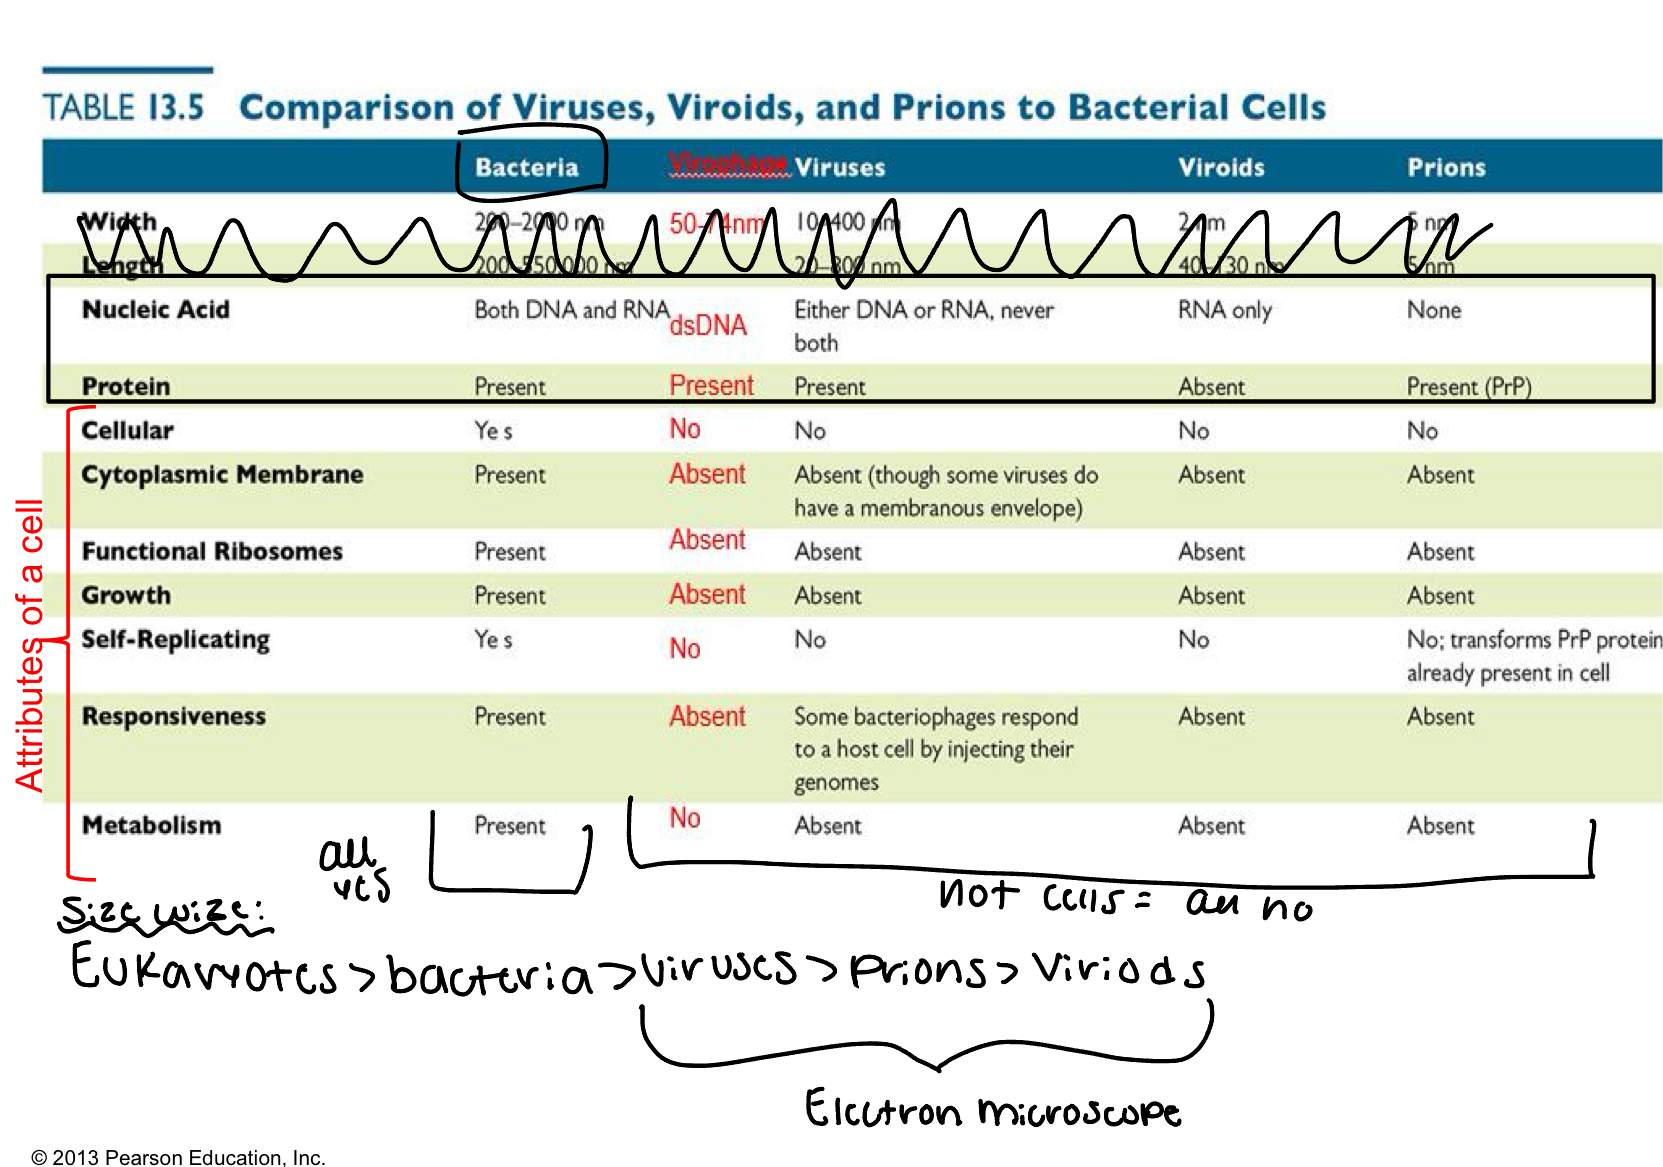 TABLE 13.5 Comparison of Viruses, Viroids, and Prions to Bacterial Cells
Bacteria Virophage Viruses Viroids Prions
Width 200–2000 nm 50-74nm 10–400 nm 2 nm 5 nm
Length 200–550,000 nm 20–800 nm 40–130 nm 5 nm
Nucleic Acid Both DNA and RNA dsDNA Either DNA or RNA, never RNA only None
both
Protein Present Present Present Absent Present (PrP)
Cellular Yes No No No No
Cytoplasmic Membrane Present Absent Absent (though some viruses do Absent Absent
have a membranous envelope)
Functional Ribosomes Present Absent Absent Absent Absent
Growth Present Absent Absent Absent Absent
Self-Replicating Yes No No No No; transforms PrP protein
already present in cell
Responsiveness Present Absent Some bacteriophages respond Absent Absent
to a host cell by injecting their
genomes
Metabolism Present No Absent Absent Absent
Attributes of a cell
all
yes
not cells = all no
Size wize:
Eukaryotes > bacteria > viruses > Prions > Viriods
Electron microscope
© 2013 Pearson Education, Inc.